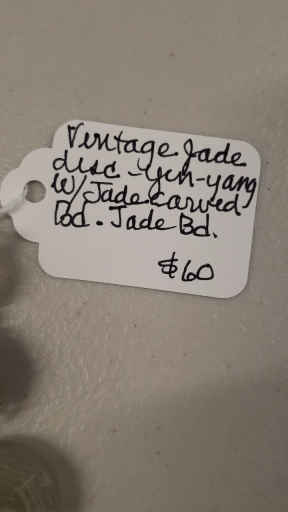 Vintage Jade
disc - yin-yang
W/Jade carved
bd. Jade Bd.
$60